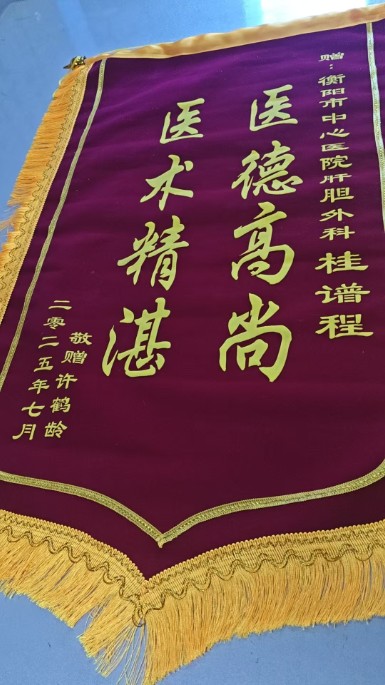 赠：衡阳市中心医院肝胆外科桂谱程
医德高尚
医术精湛
敬赠许鹤龄
二零二五年七月